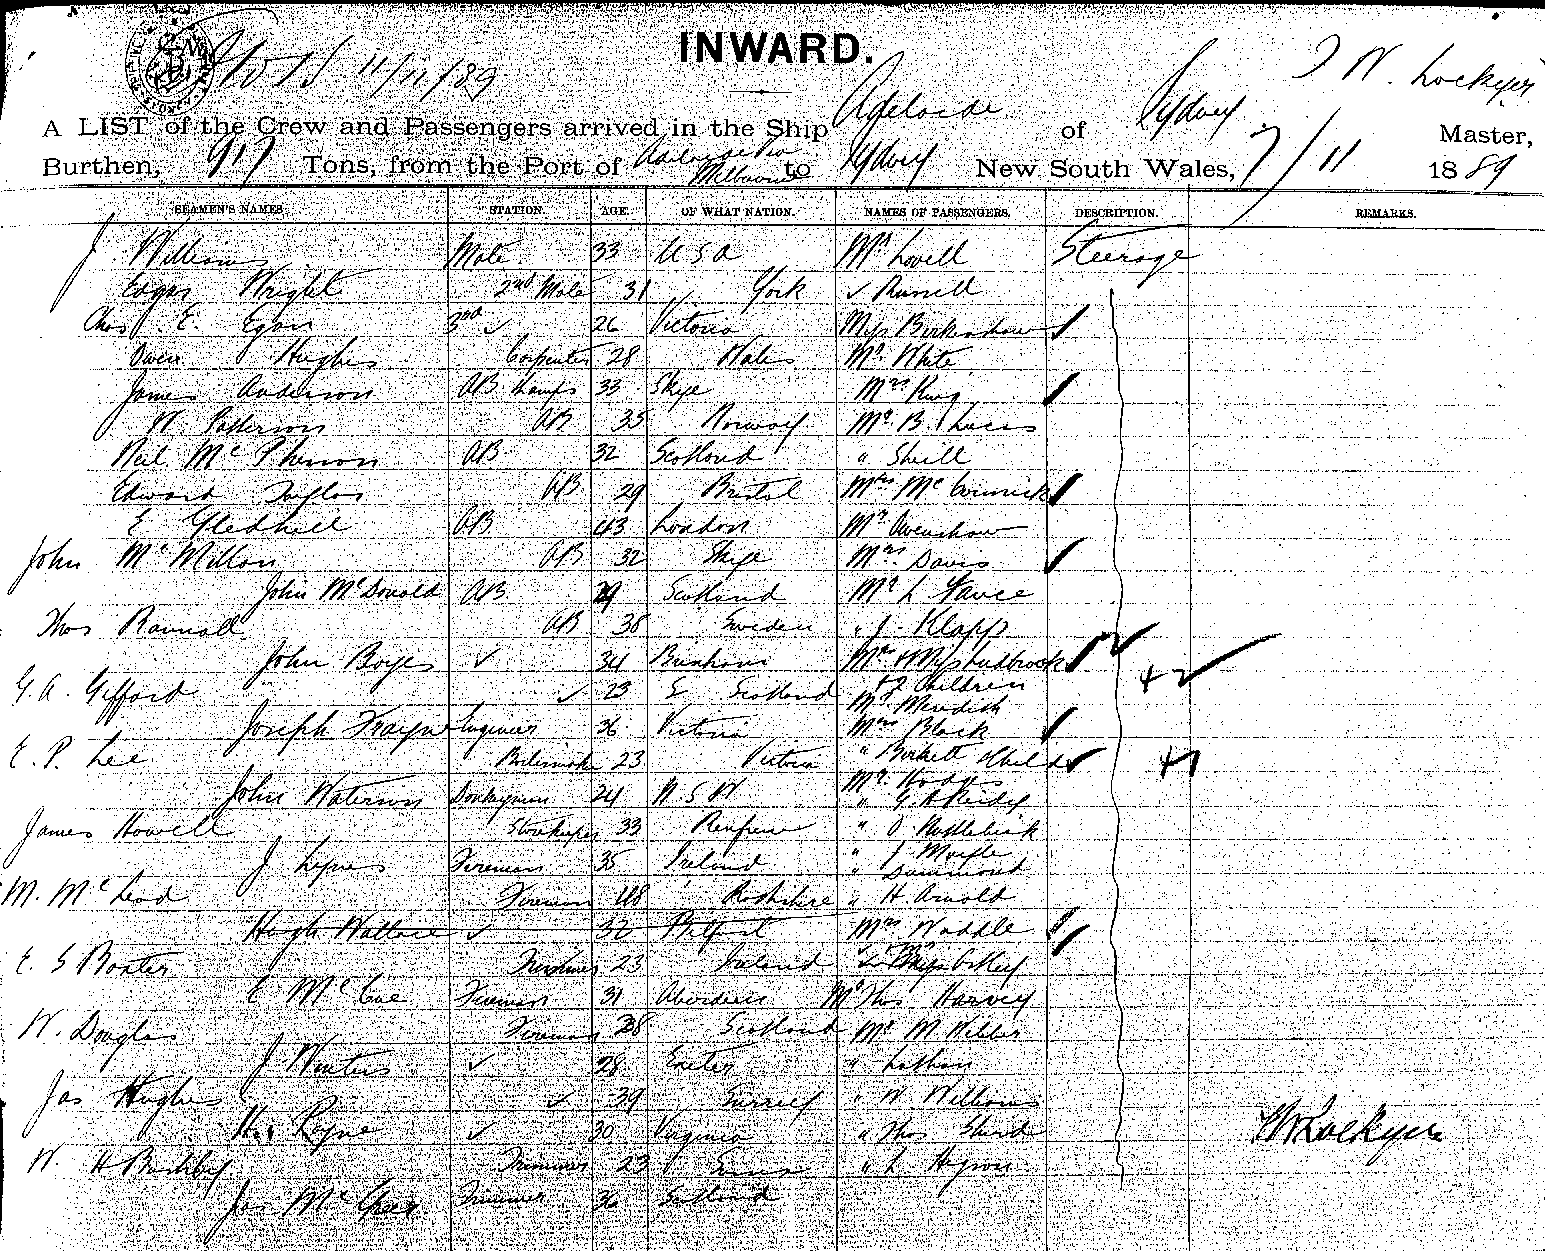 INWARD.
11/11/89
T W. Lockyer
A LIST of the Crew and Passengers arrived in the Ship Adelaide of Sydney Master,
Burthen, 917 Tons, from the Port of Adelaide via Melbourne to Sydney New South Wales, 7/11 1889
SEAMEN'S NAMES STATION. AGE. OF WHAT NATION. NAMES OF PASSENGERS. DESCRIPTION. REMARKS.
J Williams Mate 33 U S A Mr Lovell Steerage
Edgar Wright 2nd Mate 31 York ✓ Russell
Chas. E. Egan 3rd ✓ 26 Victoria Miss Birkenshaw
Owen Hughes Carpenter 28 Wales Mr White
James Anderson AB Lamps 33 Skye Mrs King
W Patterson AB 35 Norway Mr B. Lucas
Neil McPherson AB 32 Scotland " Sheill
Edward Taylor AB 29 Bristol Mrs McCormick
E Gledhill AB 43 London Mr
John McMillan AB 32 Skye Mrs Davis
John McDonald AB 29 Scotland Mr L Faure
Thos AB 38 Sweden " J. Klapp
John Boyes ✓ 34 Mr & Mrs Ludbrook
G. A. Gifford ✓ 23 E Scotland + 2 Children
Mr Meredith
Joseph Trayne Engineer 36 Victoria Mrs Black
E. P. Lee 23 Victoria " Birkett & Child
John Waterson Donkeyman 24 N S W Mr Hodges
" G H
James Howell Storekeeper 33 Renfrew " O
J Lynes Fireman 35 Ireland " J
" Dummond
M. McLeod Fireman 48 Rosshire " H Arnold
Hugh Wallace ✓ 32 Belfast Mrs Waddle
E. S Baxter 23 Ireland
C McCue Fireman 31 Aberdeen Mr Thos Harvey
W. Douglas Fireman 28 Scotland Mr M
J Winters ✓ 28 Exeter " Latham
Jas Hughes ✓ 39 Surrey " W Williams
Royne ✓ 30 Virginia " Thos
W. H Bushby Trimmer 23 " L
Jas Trimmer 36 Scotland
TW Lockyer